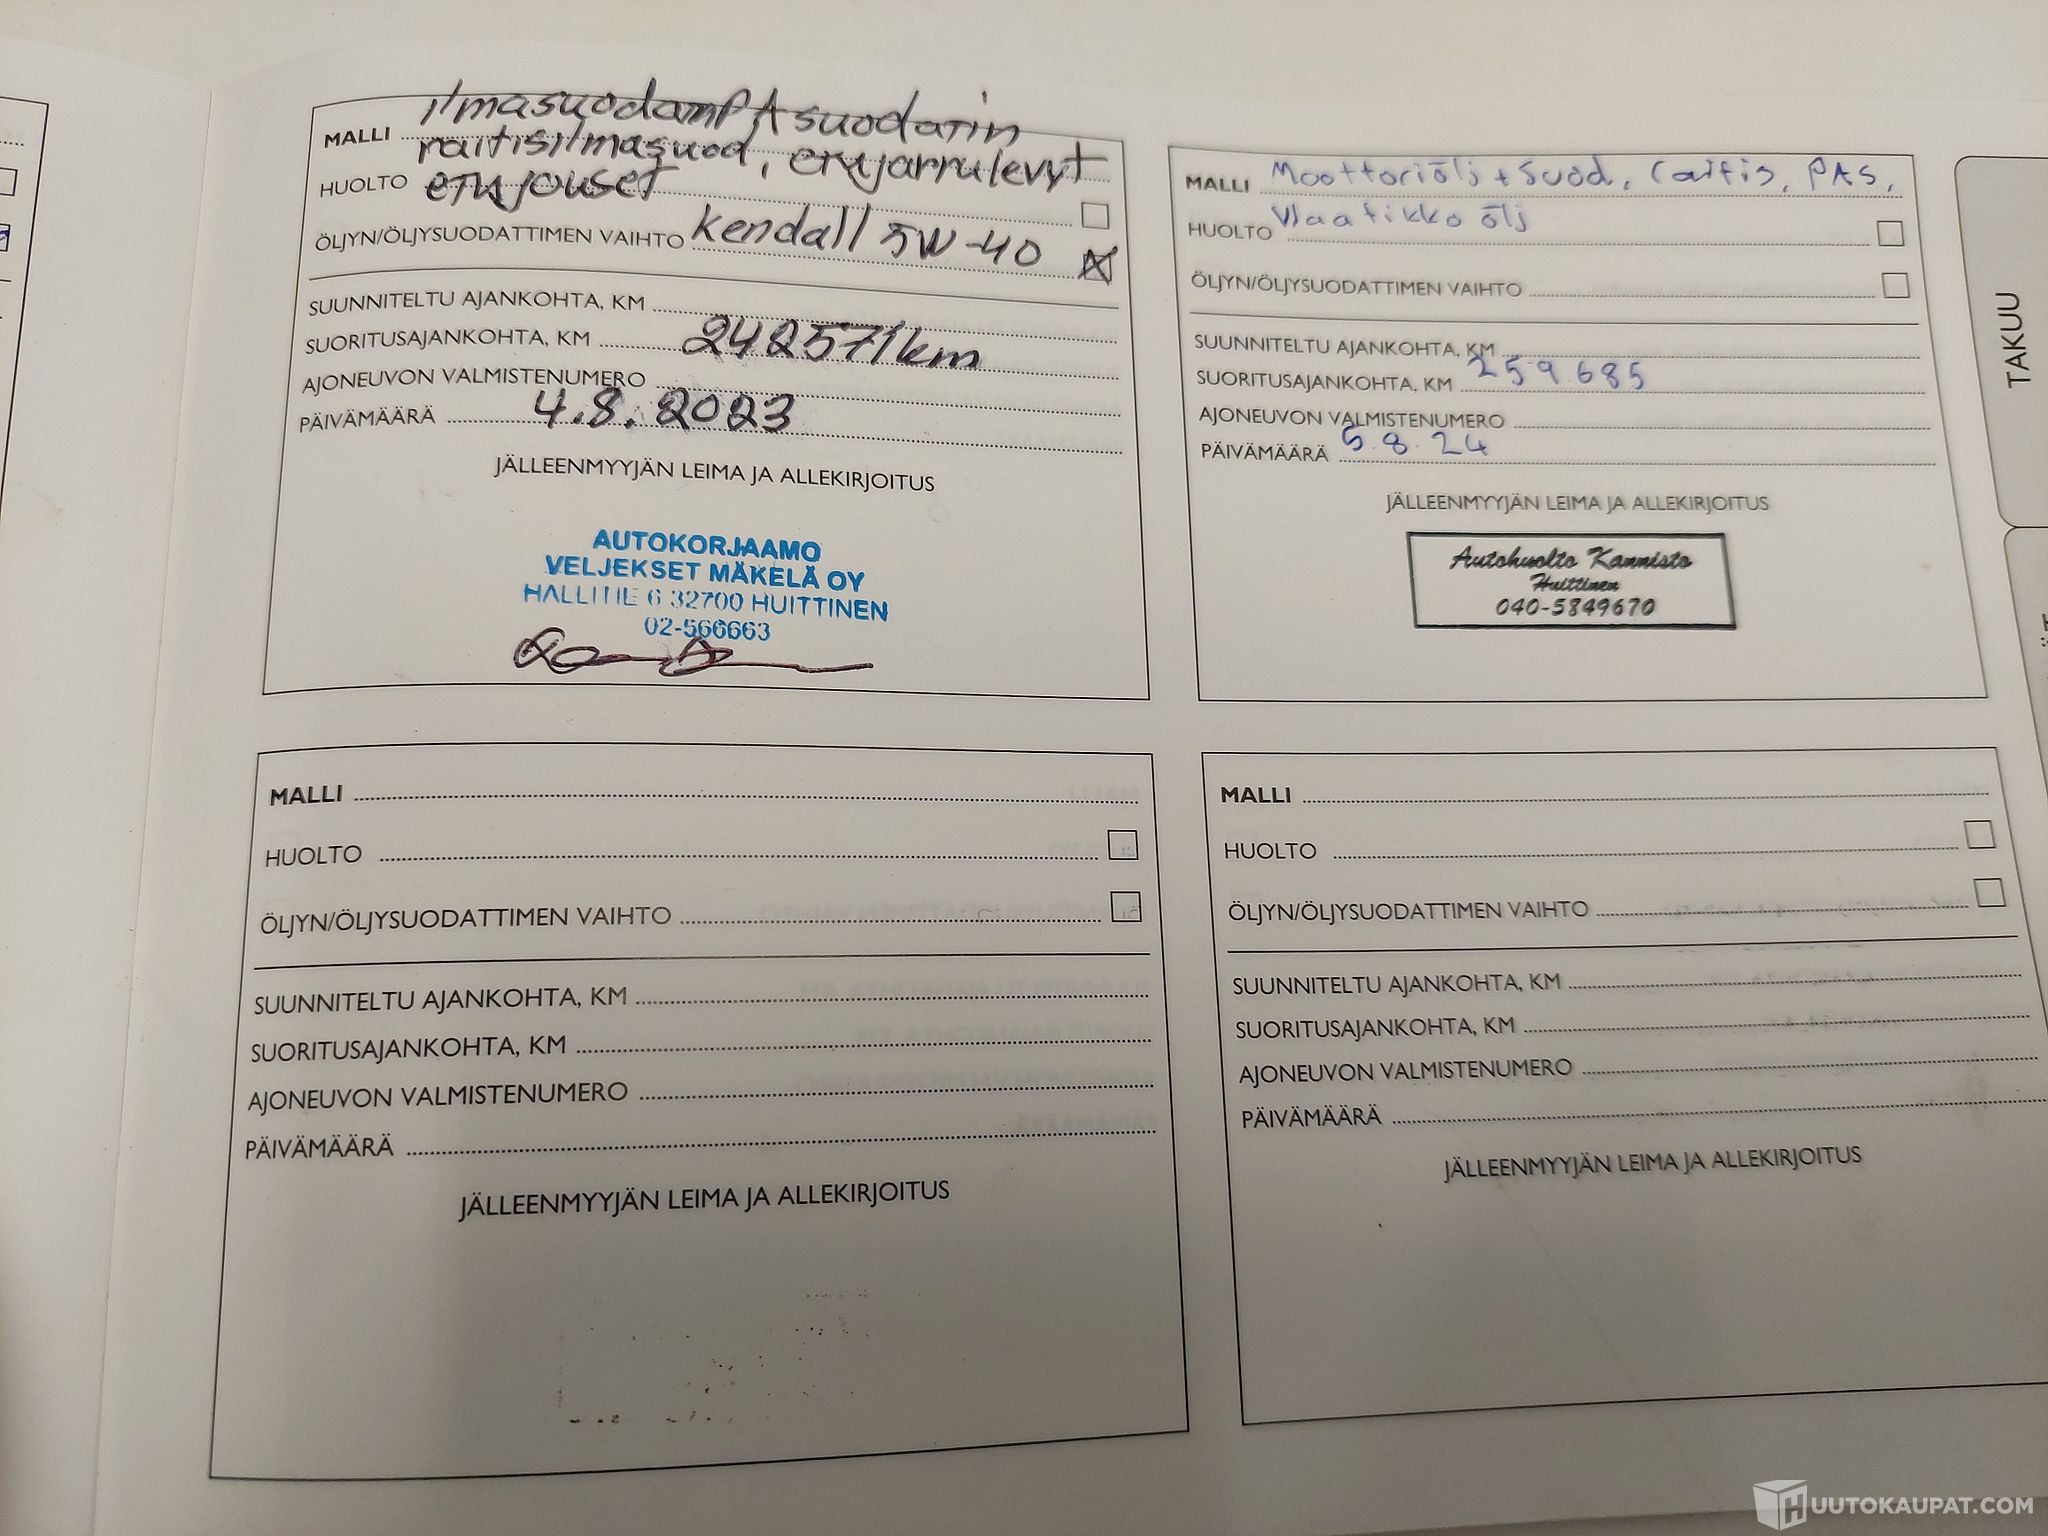 MALLI ilmasuodamPAsuodatin
raitisilmasuod, etujarrulevyt
HUOLTO etujouset
ÖLJYN/ÖLJYSUODATTIMEN VAIHTO Kendall 5W-40
SUUNNITELTU AJANKOHTA, KM
SUORITUSAJANKOHTA, KM 242571km
AJONEUVON VALMISTENUMERO
PÄIVÄMÄÄRÄ 4.8.2023
JÄLLEENMYYJÄN LEIMA JA ALLEKIRJOITUS
AUTOKORJAAMO
VELJEKSET MÄKELÄ OY
HALLITIE 6 32700 HUITTINEN
02-566663
MALLI Moottoriölj + suod, raitis, PAS,
HUOLTO Vlaatikko ölj
ÖLJYN/ÖLJYSUODATTIMEN VAIHTO
SUUNNITELTU AJANKOHTA, KM
SUORITUSAJANKOHTA, KM 259685
AJONEUVON VALMISTENUMERO
PÄIVÄMÄÄRÄ 5.8.24
JÄLLEENMYYJÄN LEIMA JA ALLEKIRJOITUS
Autohuolto Kannisto
Huittinen
040-5849670
TAKUU
MALLI
HUOLTO
ÖLJYN/ÖLJYSUODATTIMEN VAIHTO
SUUNNITELTU AJANKOHTA, KM
SUORITUSAJANKOHTA, KM
AJONEUVON VALMISTENUMERO
PÄIVÄMÄÄRÄ
JÄLLEENMYYJÄN LEIMA JA ALLEKIRJOITUS
MALLI
HUOLTO
ÖLJYN/ÖLJYSUODATTIMEN VAIHTO
SUUNNITELTU AJANKOHTA, KM
SUORITUSAJANKOHTA, KM
AJONEUVON VALMISTENUMERO
PÄIVÄMÄÄRÄ
JÄLLEENMYYJÄN LEIMA JA ALLEKIRJOITUS
HUUTOKAUPAT.COM